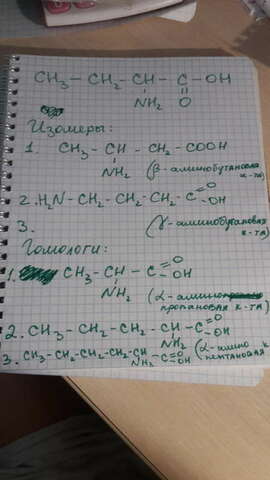 CH₃ – CH₂ – CH – C – OH
NH₂ O
Изомеры:
1. CH₃ – CH – CH₂ – COOH
NH₂ (β-аминобутановая
к-та)
2. H₂N – CH₂ – CH₂ – CH₂ – C =O
OH
3. (γ-аминобутановая
к-та)
Гомологи:
1. CH₃ – CH – C =O
OH
NH₂ (α-амино
пропановая к-та)
2. CH₃ – CH₂ – CH₂ – CH – C =O
OH
NH₂
3. CH₃–CH₂–CH₂–CH₂–CH – C =O
OH
NH₂ (α-амино